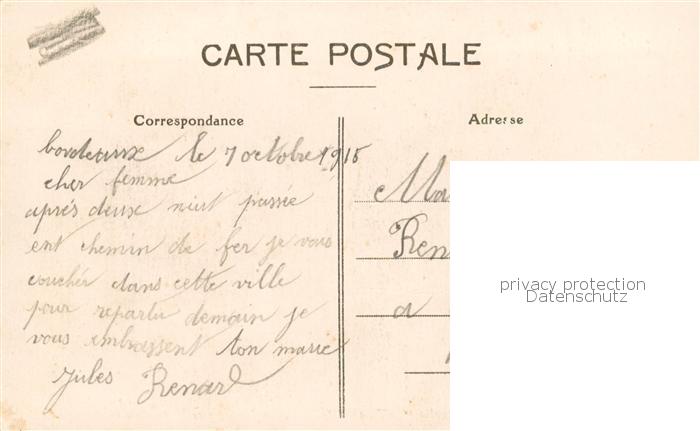 CARTE POSTALE
Correspondance
Adresse
bordeaux le 7 octobre 1915
cher femme
après deux niut passée
ent chemin de fer je vous
coucher dans cette ville
pour repartir demain je
vous embrassent ton marie
Jules Renard
Ma
Ren
a
privacy protection
Datenschutz